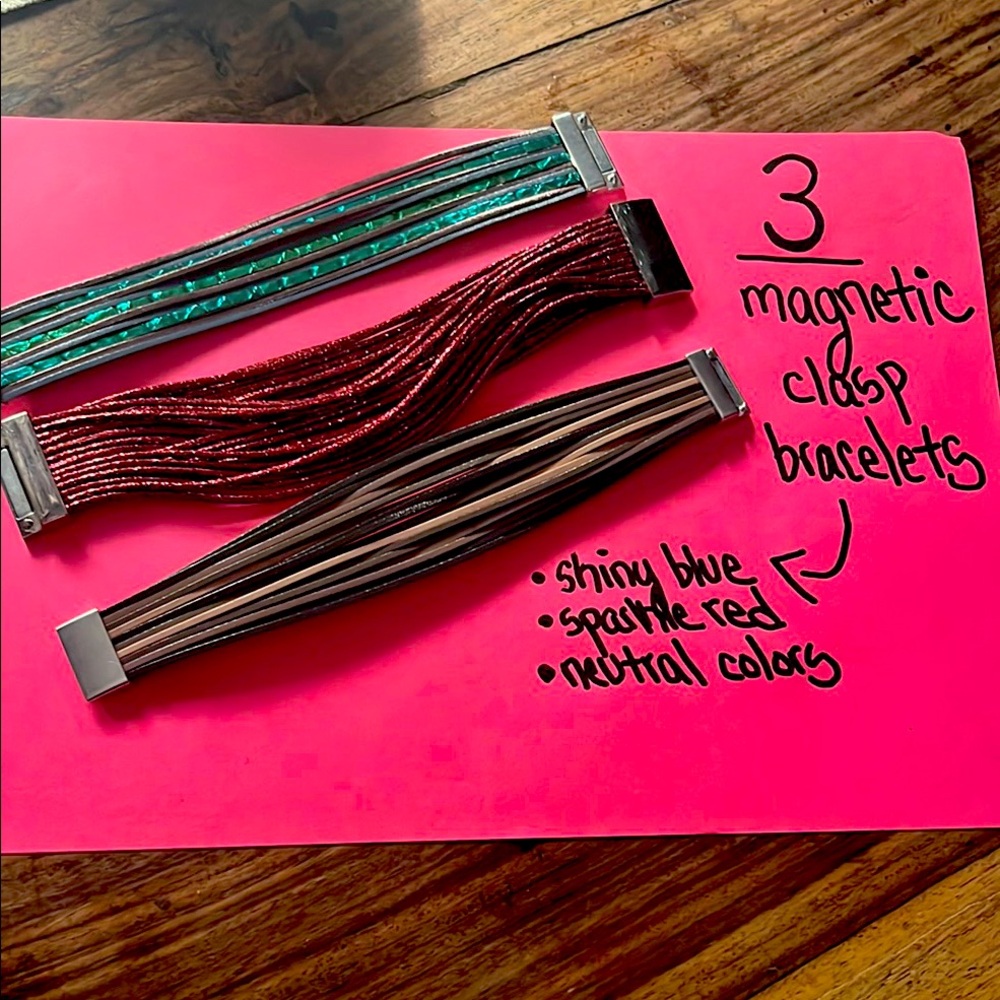 3
magnetic
clasp
bracelets
• shiny blue
• sparkle red
• neutral colors